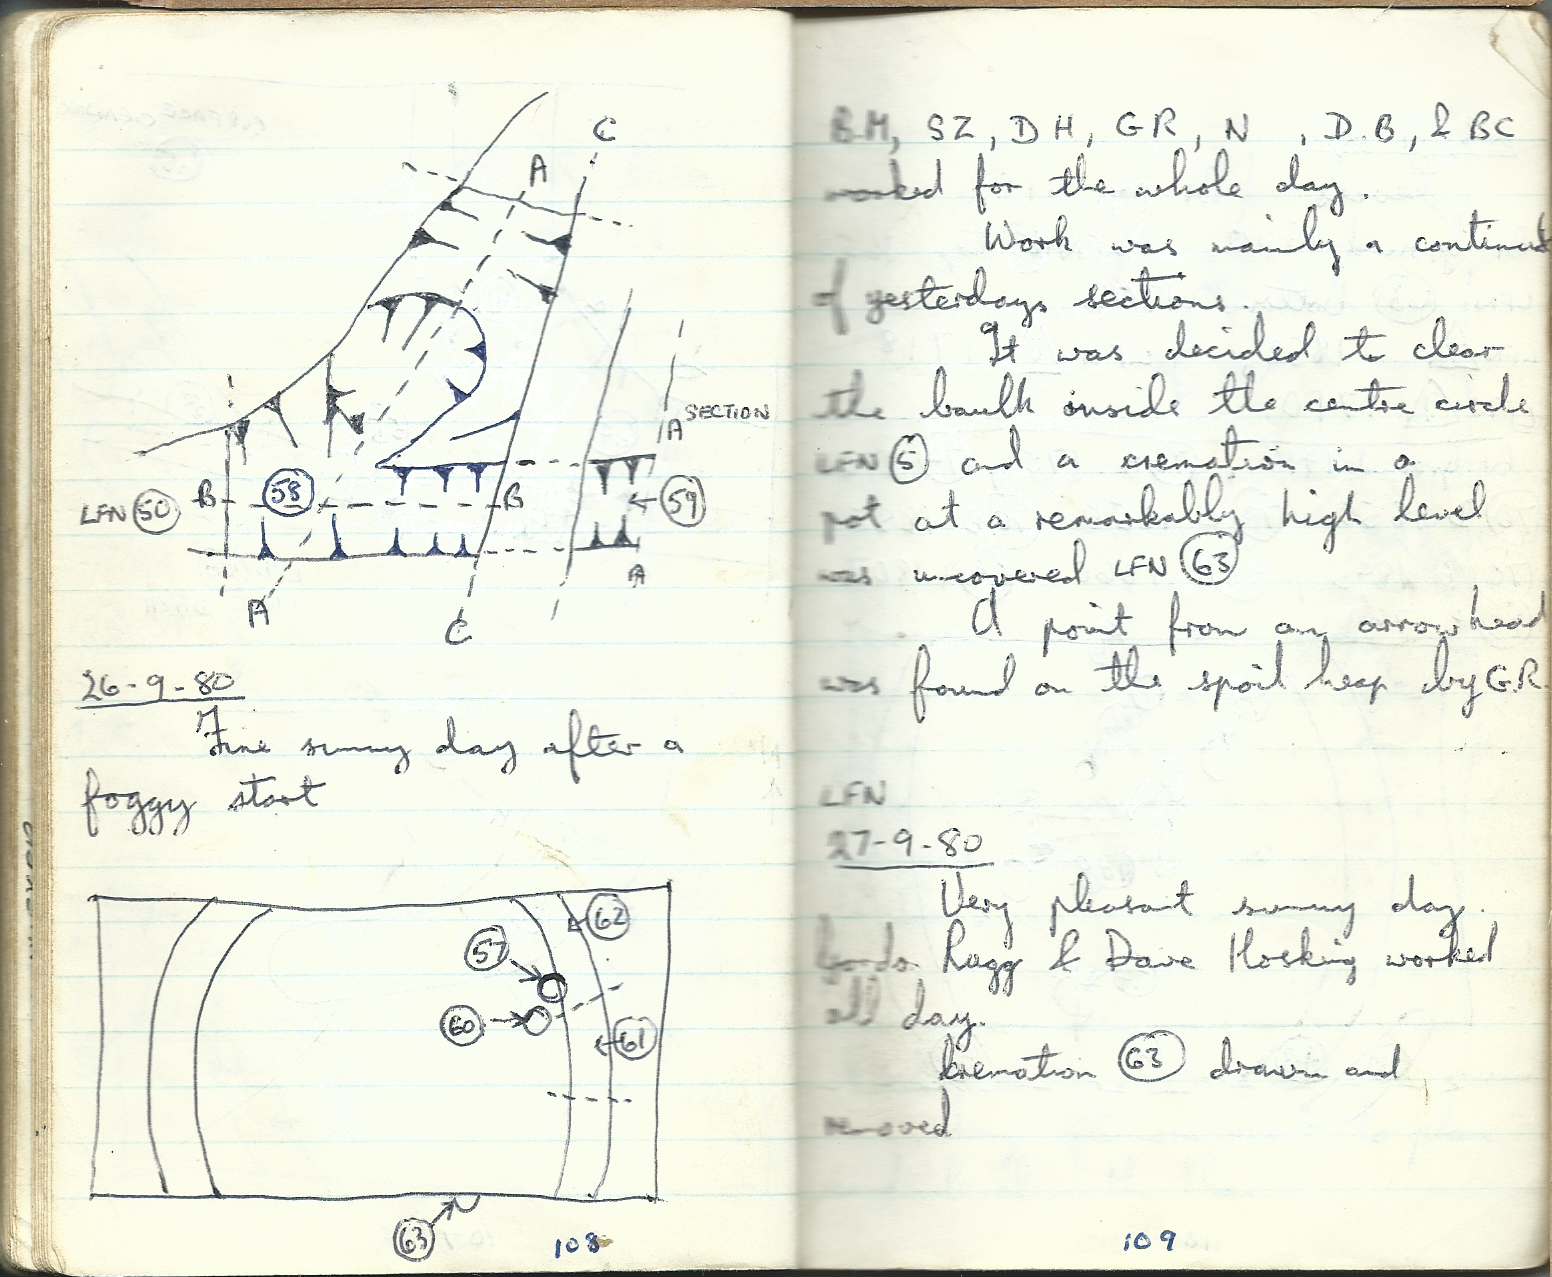 C
A
SECTION
A
B
58
B
59
LFN 50
A
A
C
26-9-80
Fine sunny day after a
foggy start
62
57
60
61
63
108
B.M, SZ, DH, GR, N , D.B, & BC
worked for the whole day.
Work was mainly a continued
of yesterdays sections.
It was decided to clear
the baulk inside the centre circle
LFN 5 and a cremation in a
pot at a remarkably high level
was uncovered LFN 63
A point from an arrowhead
was found on the spoil heap by G.R.
LFN
27-9-80
Very pleasant sunny day.
Rugg & Dave Hosking worked
all day.
Cremation 63 drawn and
removed
109